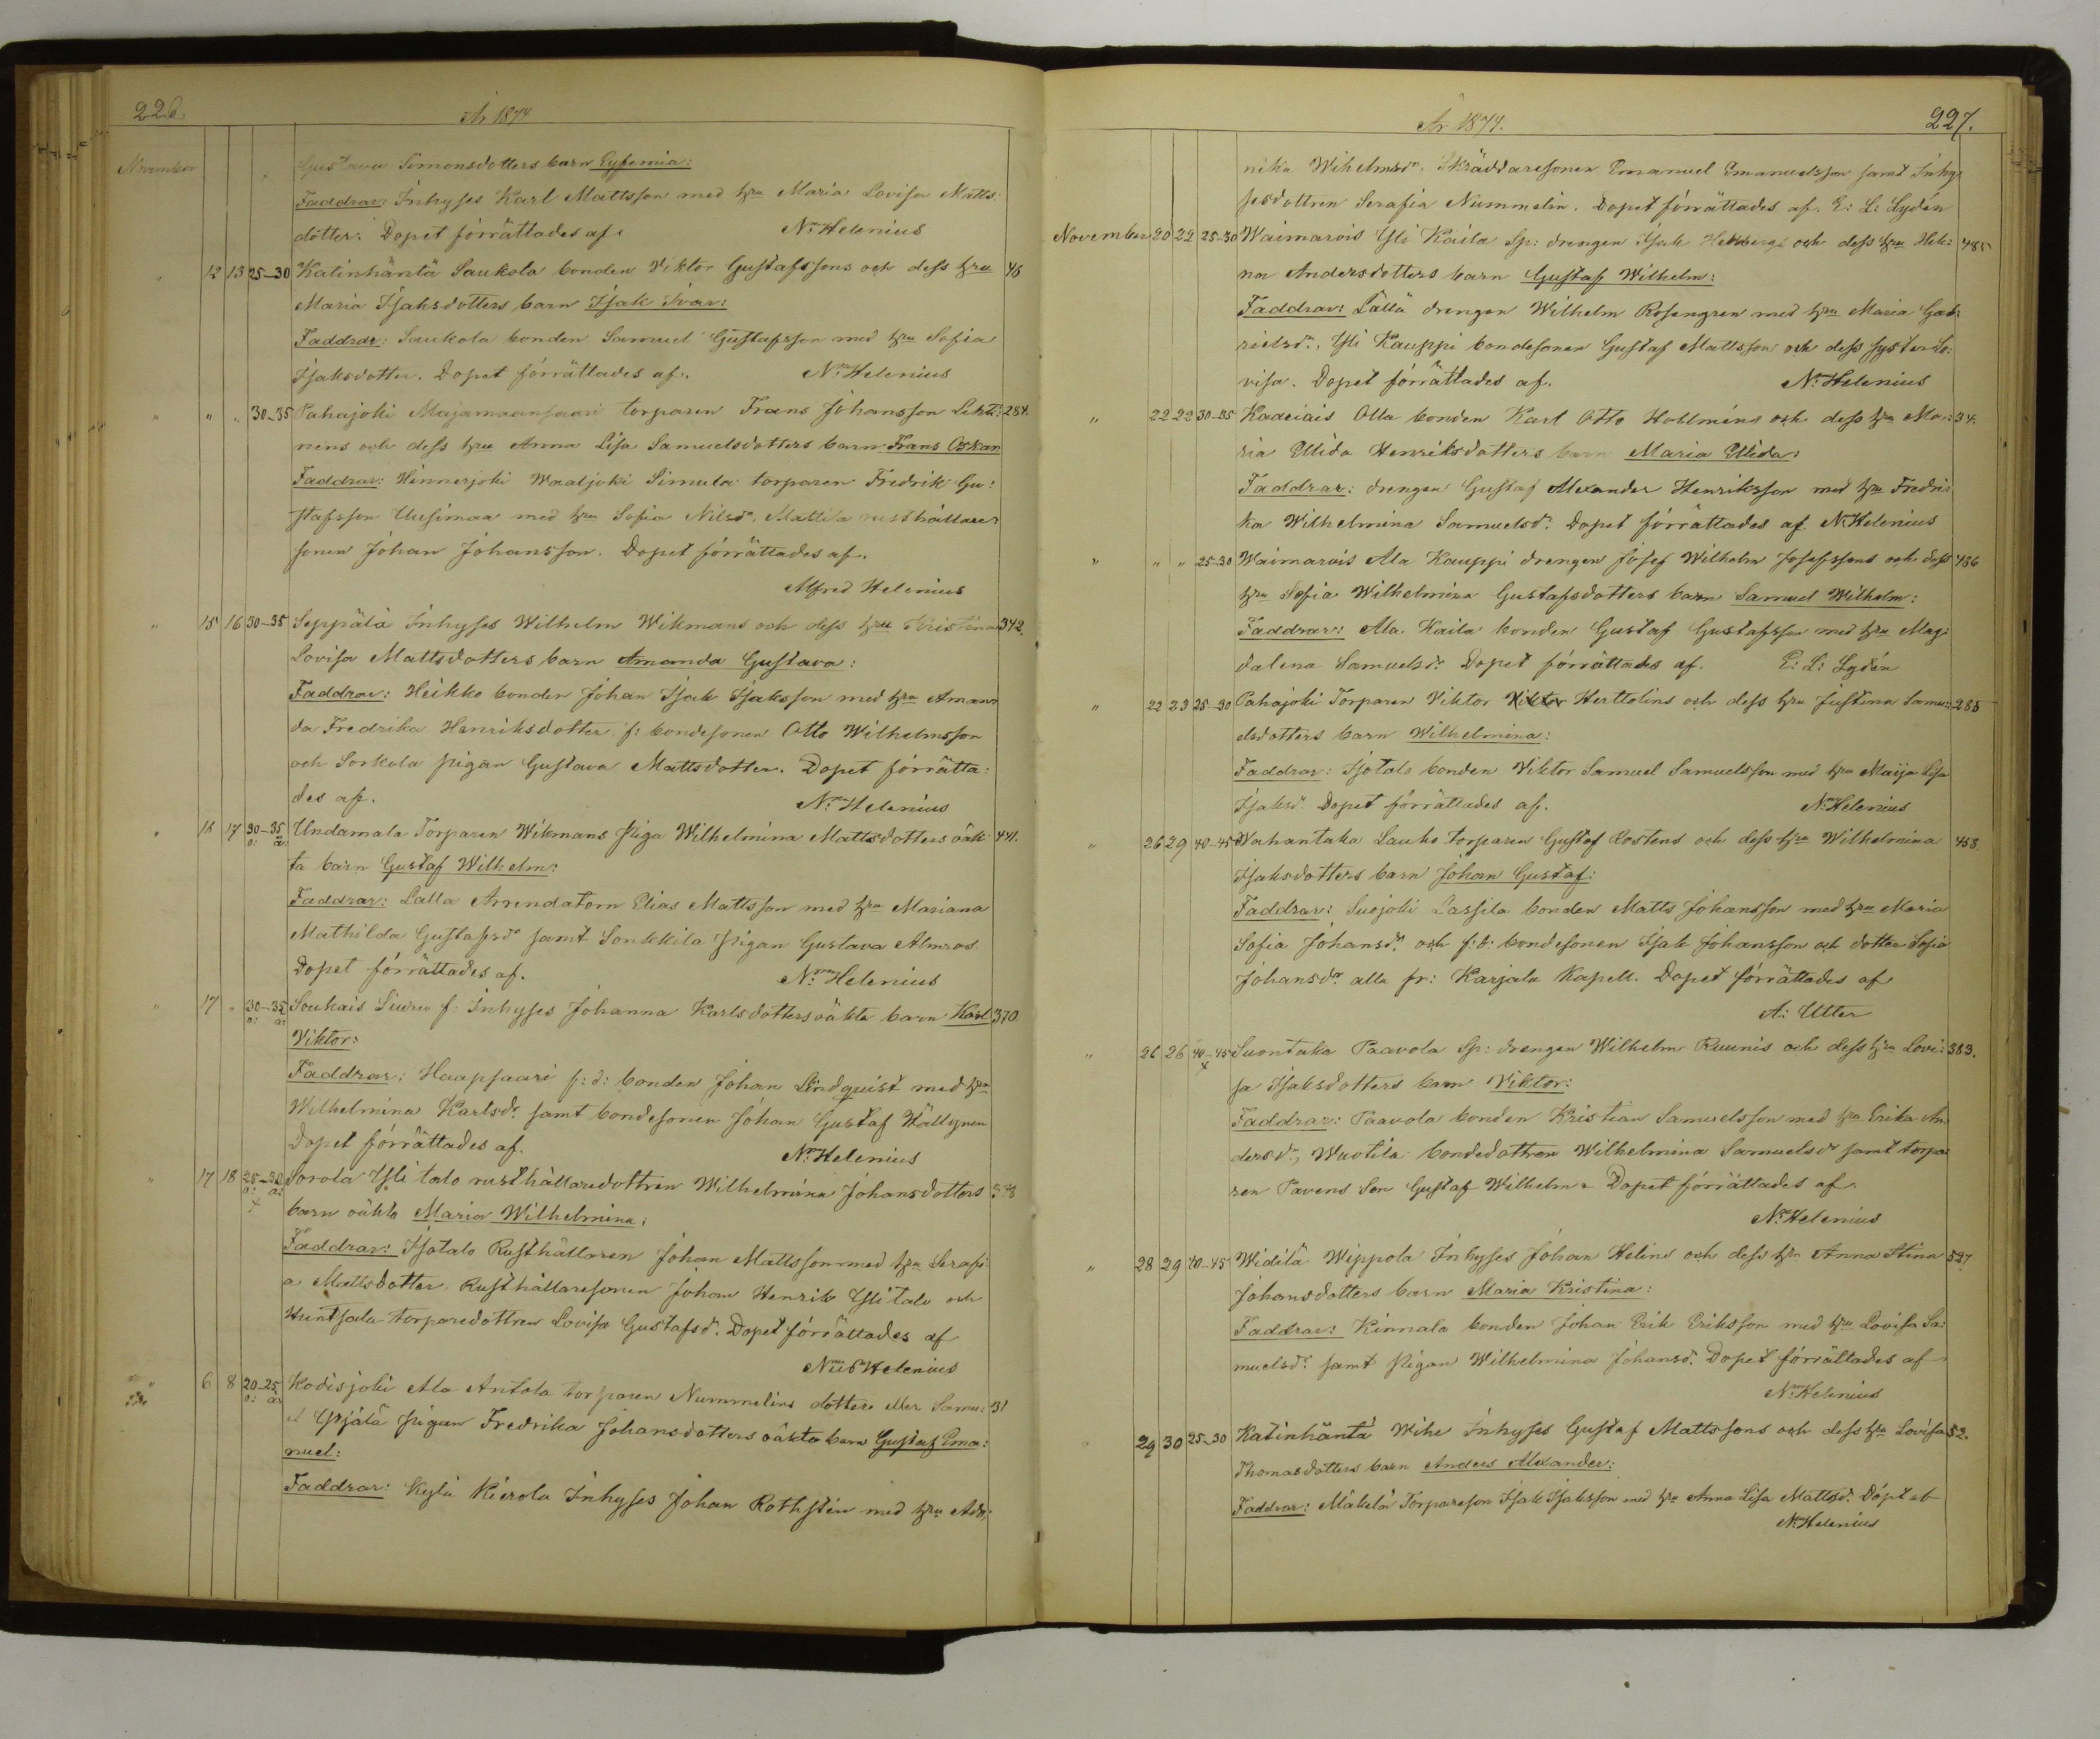 226.
År 1874
November
Gustava Simonsdotters barn Eyfemia:
Faddrar: Inhyses Karl Mattsson med hru Maria Lovisa Matts-
dotter. Dopet förrättades af. N. Helenius
" 12 13 25-30 Katinhäntä Saukola bonden Viktor Gustafssons och dess hru 46
Maria Isaksdotters barn Isak Ivar:
Faddrar: Saukola bonden Samuel Gustafsson med hru Sofia
Isaksdotter. Dopet förrättades af. N. Helenius
" " " 30-35 Pahajoki torparen Frans Johansson 284.
nens och dess hru Anna Lisa Samuelsdotters barn Frans Oskar
Faddrar: Hinnerjoki Waaljoki Simula torparen Fredrik Gu:
stafsson Uusimaa med hru Sofia Nilsdr, Mattila rusthållare:
sonen Johan Johansson. Dopet förrättades af.
Alfred Helenius
" 15 16 30-35 Seppälä Inhyses Wilhelm Wikmans och dess hru Kristina 342.
Lovisa Mattsdotters barn Amanda Gustava:
Faddrar: Heikko bonden Johan Isak Isaksson med hru Aman:
da Fredrika Henriksdotter f: bondesonen Otto Wilhelmsson
och Sorkola pigan Gustava Mattsdotter. Dopet förrätta:
des af. N. Helenius
" 16 17 30-35 Undamala Torparen Wikmans Piga Wilhelmina Mattsdotters oäk: 441.
o: ä:
ta barn Gustaf Wilhelm:
Faddrar: Lalla Arrendatorn Elias Mattsson med hru Mariana
Mathilda Gustafsdr samt Sonkkila pigan Gustava Almros.
Dopet förrättades af. N. Helenius
" 17 " 30-35 Soukais Siuru f. Inhyses Johanna Karlsdotters oäkta barn Karl 370.
o: ä:
Viktor:
Faddrar: Haapsaari f: d: bonden Johan Lindquist med hru
Wilhelmina Karlsdr. samt bondesonen Johan Gustaf
Dopet förrättades af. N. Helenius
" 17 18 25-30 Sorola Yli talo rusthållaredottren Wilhelmina Johansdotters
o: ä:
x
barn oäkta Maria Wilhelmina:
Faddrar: Isotalo Rusthållaren Johan Mattsson med hru Serafi:
a Mattsdotter, Rusthållaresonen Johan Henrik Ylitalo och
Huntsala torparedottren Lovisa Gustafsdr. Dopet förrättades af
Nils Helenius
" 6 8 20-25 Kodisjoki Ala Antola torparen Nummelins dotter eller Samu: 31
o: ä:
el Yrjälä pigan Fredrika Johansdotters oäkta barn Gustaf Ema:
nuel:
Faddrar: Kylä Kierola Inhyses Johan Rothsten med hru
År 1874.
227.
nika Wihelmsdr. Skräddaresonen Emanuel Emanuelsson samt Inhy:
sesdottren Serafia Nummelin. Dopet förrättades af. E: L: Lydén
November 20 22 25-30 Waimarois Yli Kaila Sp: drengen Isak och dess hru Hele: 485
na Andersdotters barn Gustaf Wilhelm:
Faddrar: Lällä drengen Wilhelm Rosengren med hru Maria Gab:
rielsdr., Yli Kauppi bondesonen Gustaf Mattsson och dess syster Lo:
visa. Dopet förrättades af. N. Helenius
" 22 22 30-35 Kaaciais Olla bonden Karl Otto Hollméns och dess hru Ma: 34.
ria Ulrida Henriksdotters barn Maria Ulrida:
Faddrar: drengen Gustaf Alexander Henriksson med hru Fredri:
ka Wilhelmina Samuelsdr. Dopet förrättades af N. Helenius
" " " 25-30 Waimarois Ala Kauppi drengen Josef Wilhelm Josefssons och dess 486
hru Sofia Wilhelmina Gustafsdotters barn Samuel Wilhelm:
Faddrar: Ala Kaila bonden Gustaf Gustafsson med hru Mag:
dalena Samuelsdr. Dopet förrättades af. E: L: Lydén
" 22 23 25-30 Pahajoki Torparen Viktor Viktor Herttolins och dess hru Justina Samu: 285
elsdotters barn Wilhelmina:
Faddrar: Isotalo bonden Viktor Samuel Samuelsson med hru Maija Lisa
Isaksdr. Dopet förrättades af. N. Helenius
" 26 29 40-45 Wahantaka Lauko torparen Gustaf Rostens och dess hru Wilhelmina 458
Isaksdotters barn Johan Gustaf:
Faddrar: Suojoki Lassila bonden Matts Johansson med hru Maria
Sofia Johansdr. och f: b: bondesonen Isak Johansson och dotter Sofia
Johansdr alla fr: Karjala Kapell. Dopet förrättades af
A: Utter
" 26 26 40-45 Suontaka Paavola Sp: drengen Wilhelm Ruunis och dess hru Lovi: 383.
x
sa Isaksdotters barn Viktor:
Faddrar: Paavola bonden Kristian Samuelsson med hru Erika An:
dersdr., Wuotila bondedottren Wilhelmina Samuelsdr samt torpa:
ren Pavens Son Gustaf Wilhelm. Dopet förrättades af.
N. Helenius
" 28 29 40-45 Widilä Wippola Inhyses Johan Helins och dess hru Anna Stina 527
Johansdotters barn Maria Kristina:
Faddrar: Kinnala bonden Johan Erik Eriksson med hru Lovisa Sa:
muelsdr. samt Pigan Wilhelmina Johansdr. Dopet förrättades af
N. Helenius
29 30 25-30 Katinhäntä Wihe Inhyses Gustaf Mattssons och dess hru Lovisa 52.
Thomasdotters barn Anders Alexander:
Faddrar: Mäkelä Torpareson Isak Isaksson med hru Anna Lisa Mattsdr. Döpt af
N. Helenius